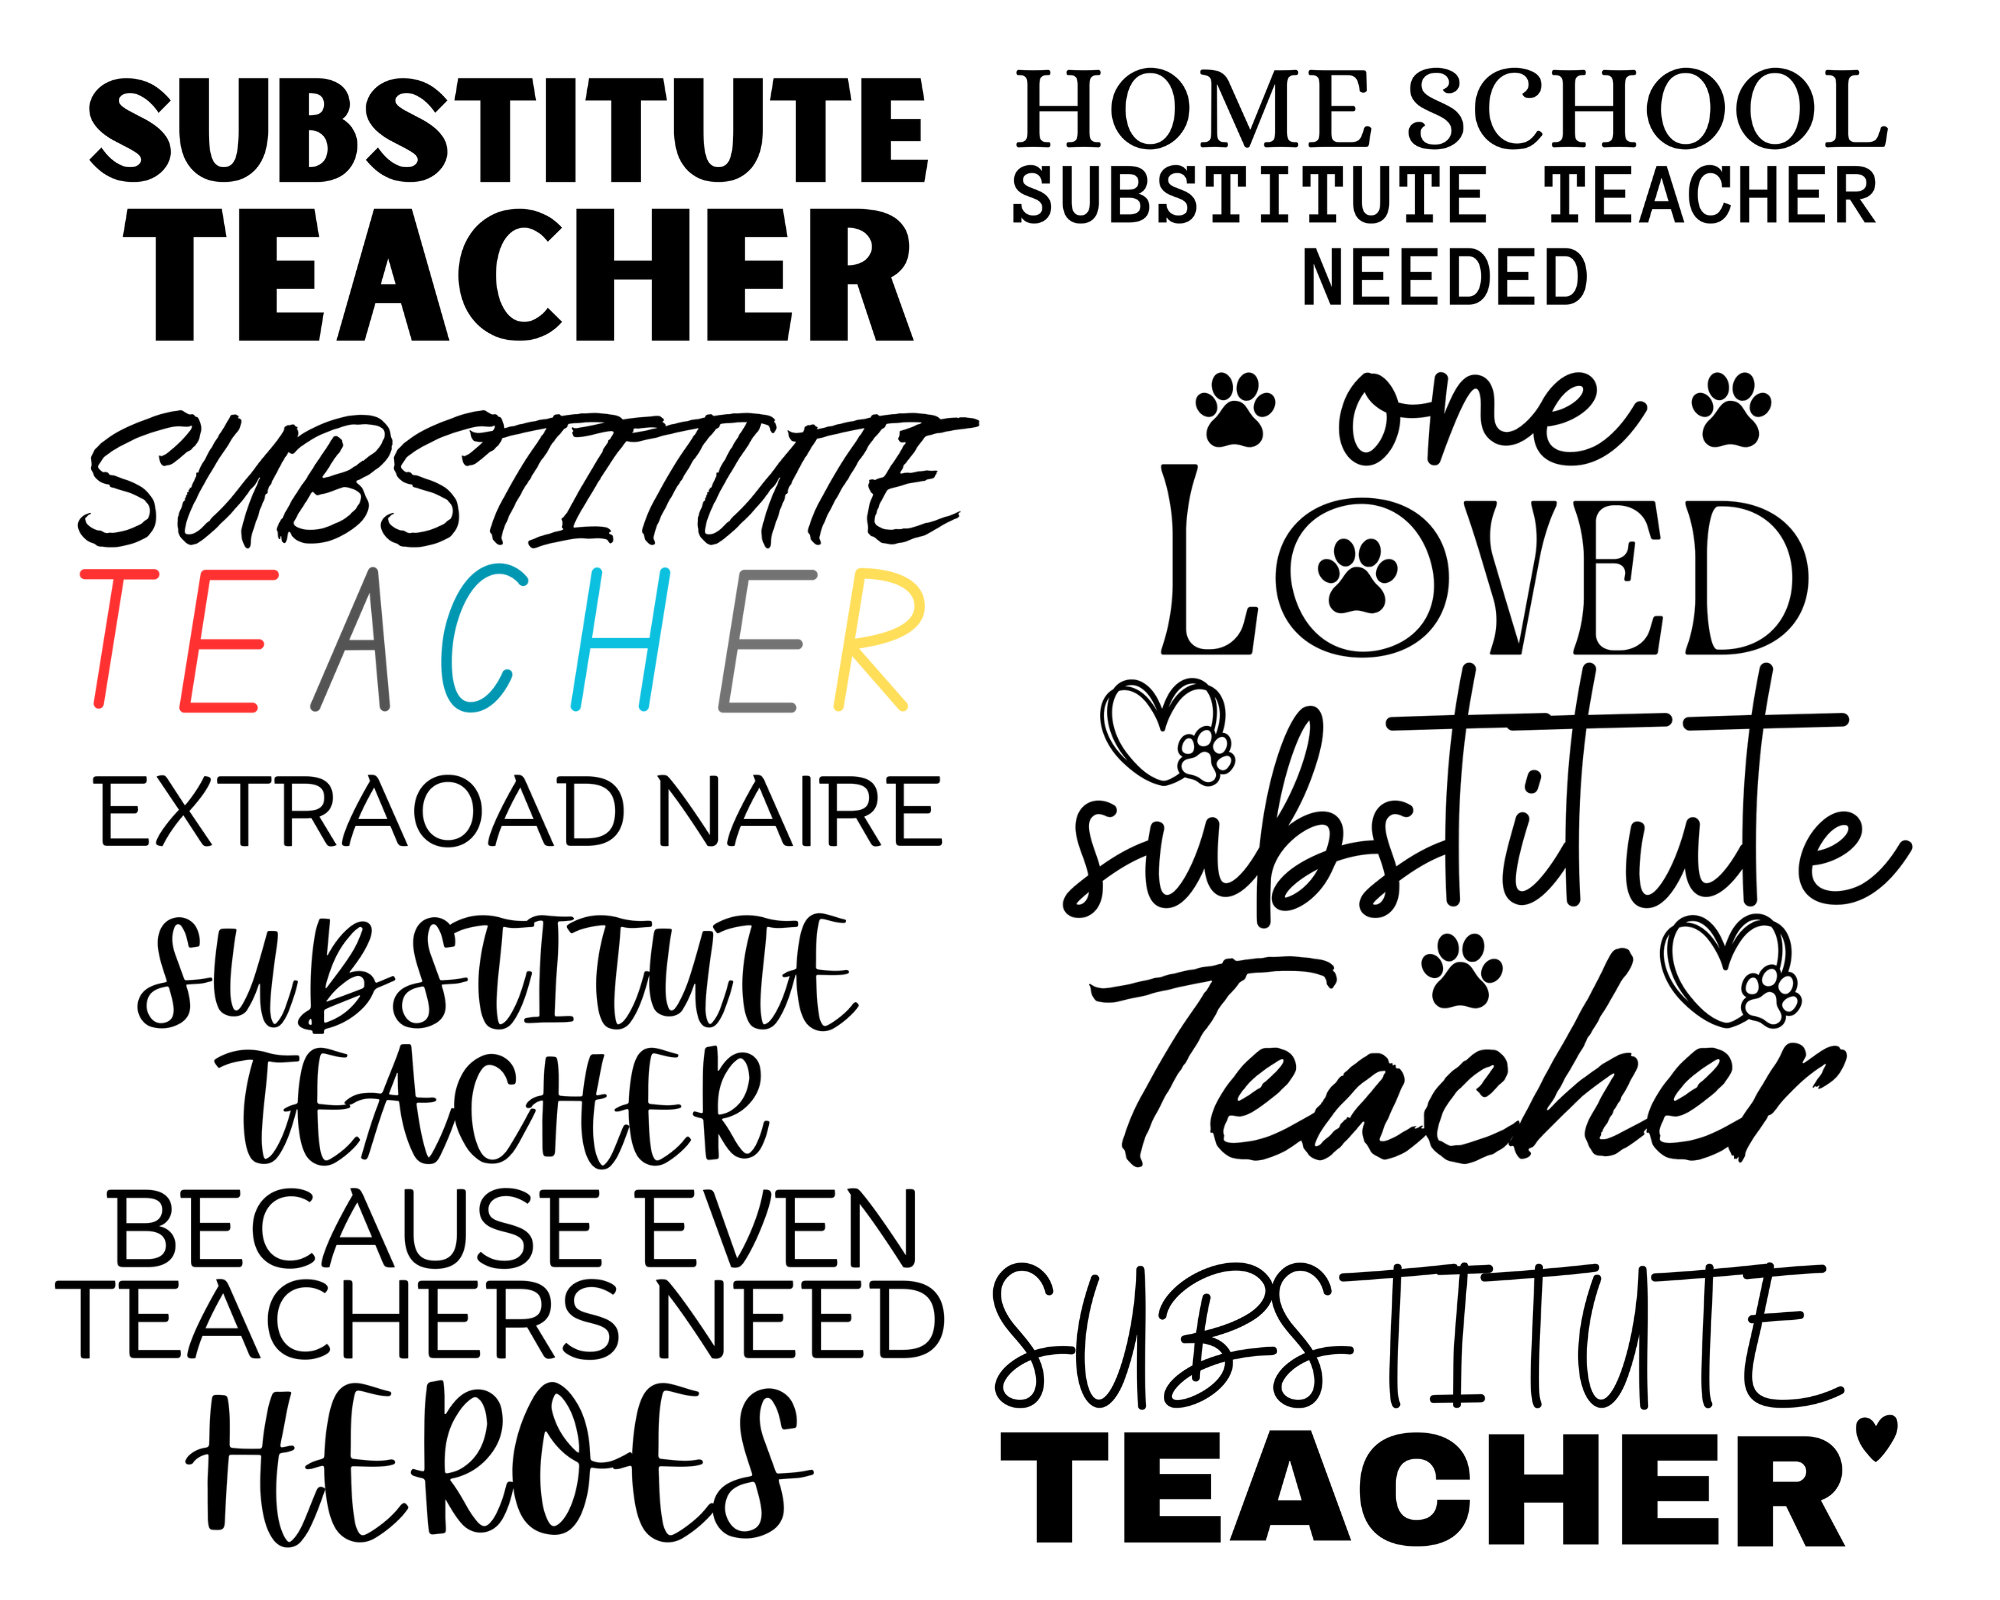 SUBSTITUTE
TEACHER
SUBSTITUTE
TEACHER
EXTRAOAD NAIRE
SUBSTITUTE
TEACHER
BECAUSE EVEN
TEACHERS NEED
HEROES
HOME SCHOOL
SUBSTITUTE TEACHER
NEEDED
one
LOVED
substitute
Teacher
SUBSTITUTE
TEACHER